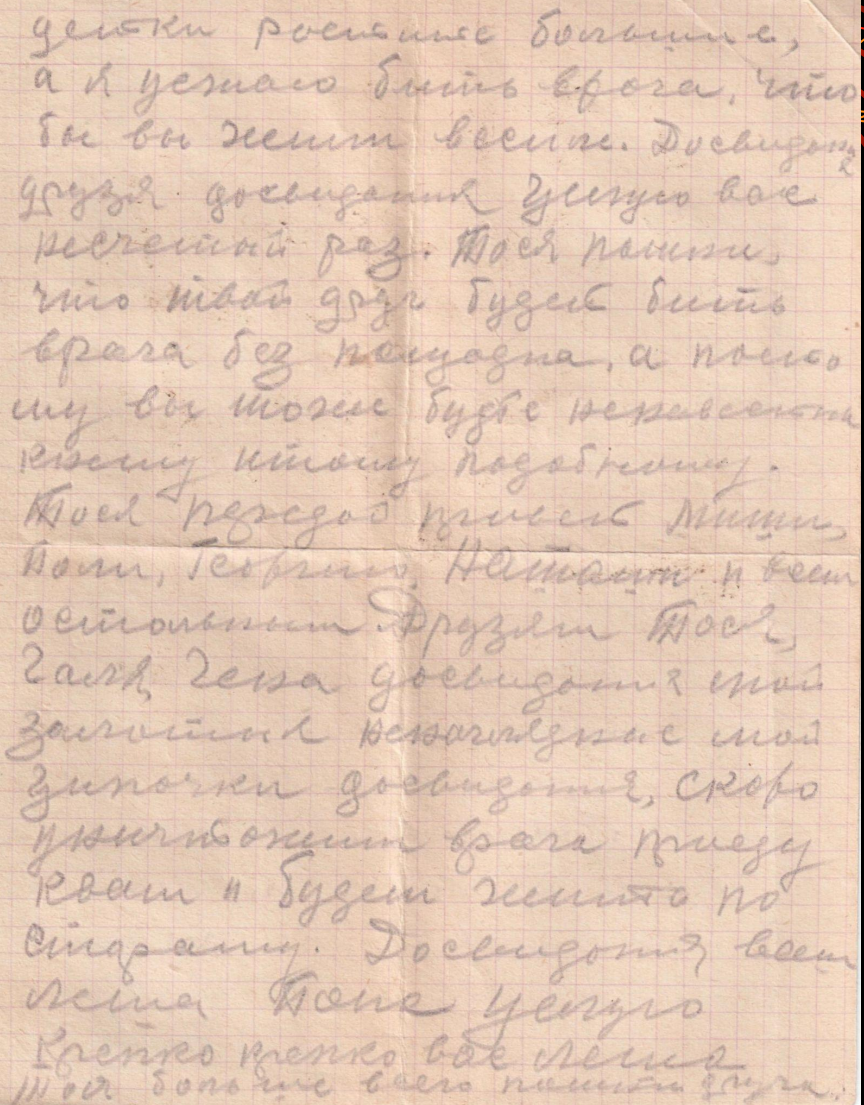 детки ростите большие,
а я уезжаю бить врага, что
бы вы жили весили. Досвидания
друзя досвидания Целую вас
несчетый раз. Тося помни,
что твой друг будет бить
врага без пощадна, а поэто
му вы тоже будте
кнему итому подобному.
Тося передай привет Миши,
Поли, Георгию, Наташи и всем
остальным Друзям Тося,
Галя, Гена досвидания мои
золотия ненаглядние мои
Ципочки досвидания, скоро
уничтожим врага приеду
квам и будем жить по
старому. Досвидания всем
Леша Тоне целую
крепко крепко вас Леша
Тося больше всего помни друга.